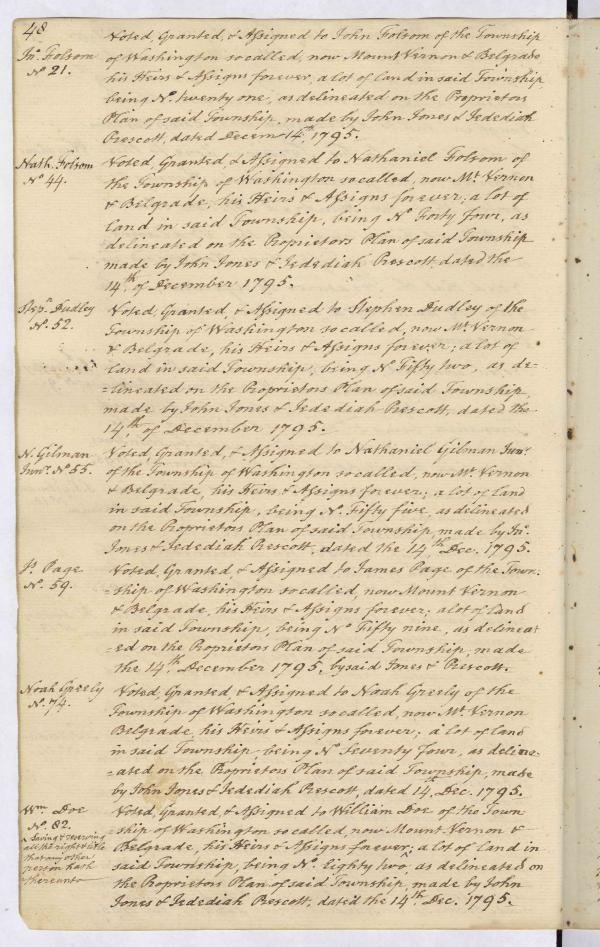 48
Jnº. Folsom
Nº 21.
Voted, Granted, & Assigned to John Folsom of the Township
of Washington so called, now Mount Vernon & Belgrade,
his Heirs & Assigns forever, a lot of land in said Township
being Nº. twenty one, as delineated on the Proprietors
Plan of said Township, made by John Jones & Jedediah
Prescott, dated Decem. 14th, 1795.
Nath. Folsom
Nº 44.
Voted, Granted, & Assigned to Nathaniel Folsom of
the Township of Washington so called, now Mt. Vernon
& Belgrade, his Heirs & Assigns forever; a lot of
land in said Township, being Nº Forty four, as
delineated on the Proprietors Plan of said Township
made by John Jones & Jedediah Prescott, dated the
14th. of December 1795.
Stepn. Dudley
Nº. 52.
Voted, Granted, & Assigned to Stephen Dudley of the
Township of Washington so called, now Mt. Vernon
& Belgrade, his Heirs & Assigns forever; a lot of
land in said Township, being Nº Fifty two, as de=
=lineated on the Proprietors Plan of said Township,
made by John Jones & Jedediah Prescott, dated the
14th. of December 1795.
N. Gilman
Junr. Nº 55.
Voted, Granted, & Assigned to Nathaniel Gilman Junr.
of the Township of Washington so called, now Mt. Vernon
& Belgrade, his Heirs & Assigns forever; a lot of land
in said Township, being Nº. Fifty five, as delineated
on the Proprietors Plan of said Township, made by Jnº.
Jones & Jedediah Prescott, dated the 14th Dec. 1795.
Js. Page
Nº. 59.
Voted, Granted & Assigned to James Page of the Town=
=ship of Washington so called, now Mount Vernon
& Belgrade, his Heirs & Assigns forever; a lot of land
in said Township, being Nº Fifty nine, as delineat=
=ed on the Proprietors Plan of said Township, made
the 14th. December 1795, by said Jones & Prescott.
Noah Greely
Nº. 74.
Voted, Granted & Assigned to Noah Greely of the
Township of Washington so called, now Mt. Vernon
Belgrade, his Heirs & Assigns forever; a lot of land
in said Township being Nº Seventy four, as deline=
=ated on the Proprietors Plan of said Township, made
by John Jones & Jedediah Prescott, dated 14th. Dec. 1795.
Wm. Doe
Nº. 82.
Voted, Granted, & Assigned to William Doe of the Town
-ship of Washington so called, now Mount Vernon &
Belgrade, his Heirs & Assigns forever; a lot of land in
said Township, being Nº. Eighty two ^, as delineated on
the Proprietors Plan of said Township, made by John
Jones & Jedediah Prescott, dated the 14th. Dec. 1795.
^ Saving & reserving
all the right & title
that any other
person hath
thereunto